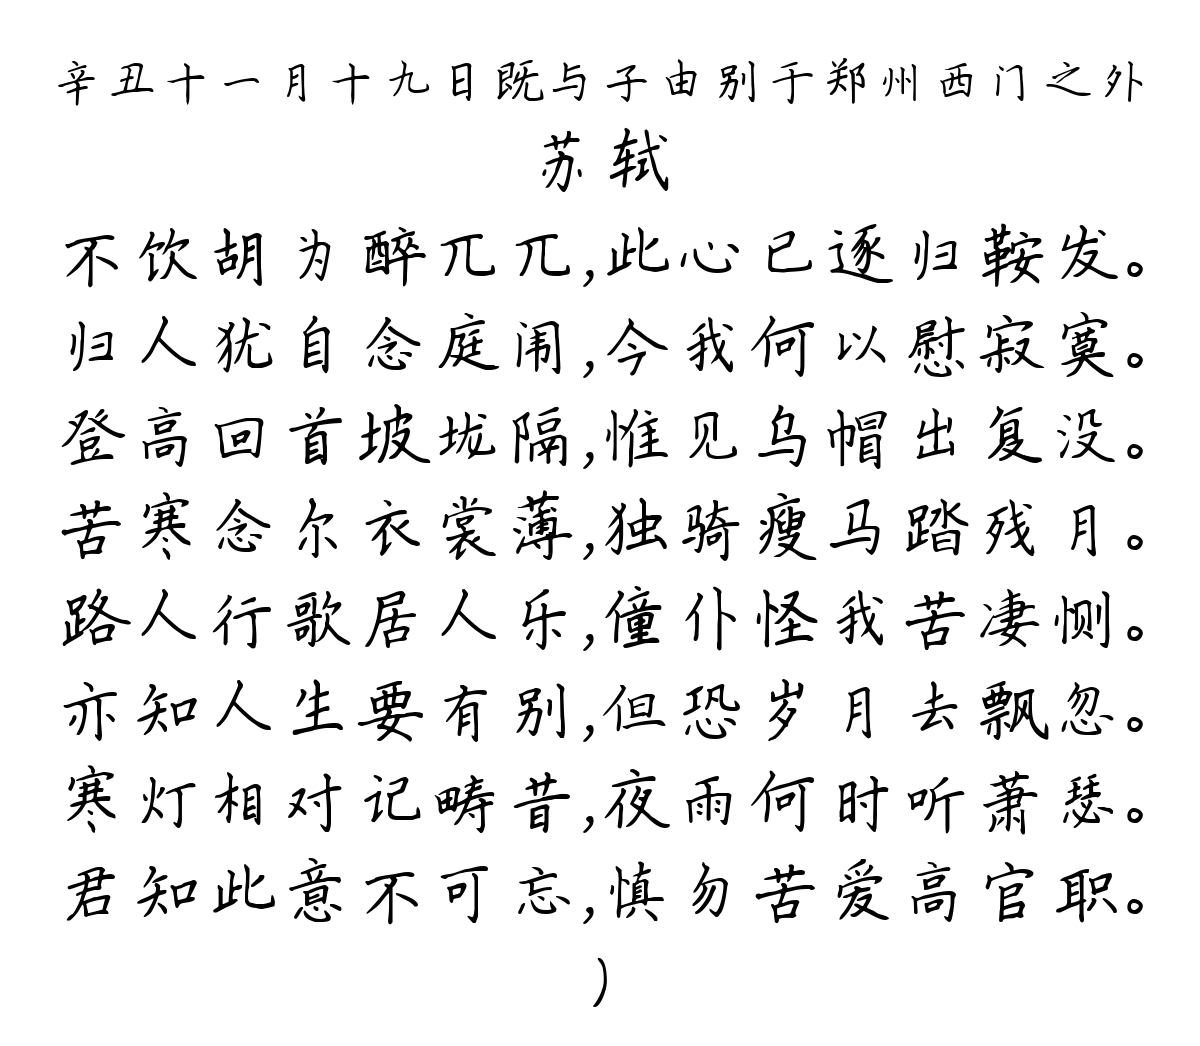 辛丑十一月十九日既与子由别于郑州西门之外
苏轼
不饮胡为醉兀兀,此心已逐归鞍发。
归人犹自念庭闱,今我何以慰寂寞。
登高回首坡垅隔,惟见乌帽出复没。
苦寒念尔衣裳薄,独骑瘦马踏残月。
路人行歌居人乐,僮仆怪我苦凄恻。
亦知人生要有别,但恐岁月去飘忽。
寒灯相对记畴昔,夜雨何时听萧瑟。
君知此意不可忘,慎勿苦爱高官职。
)